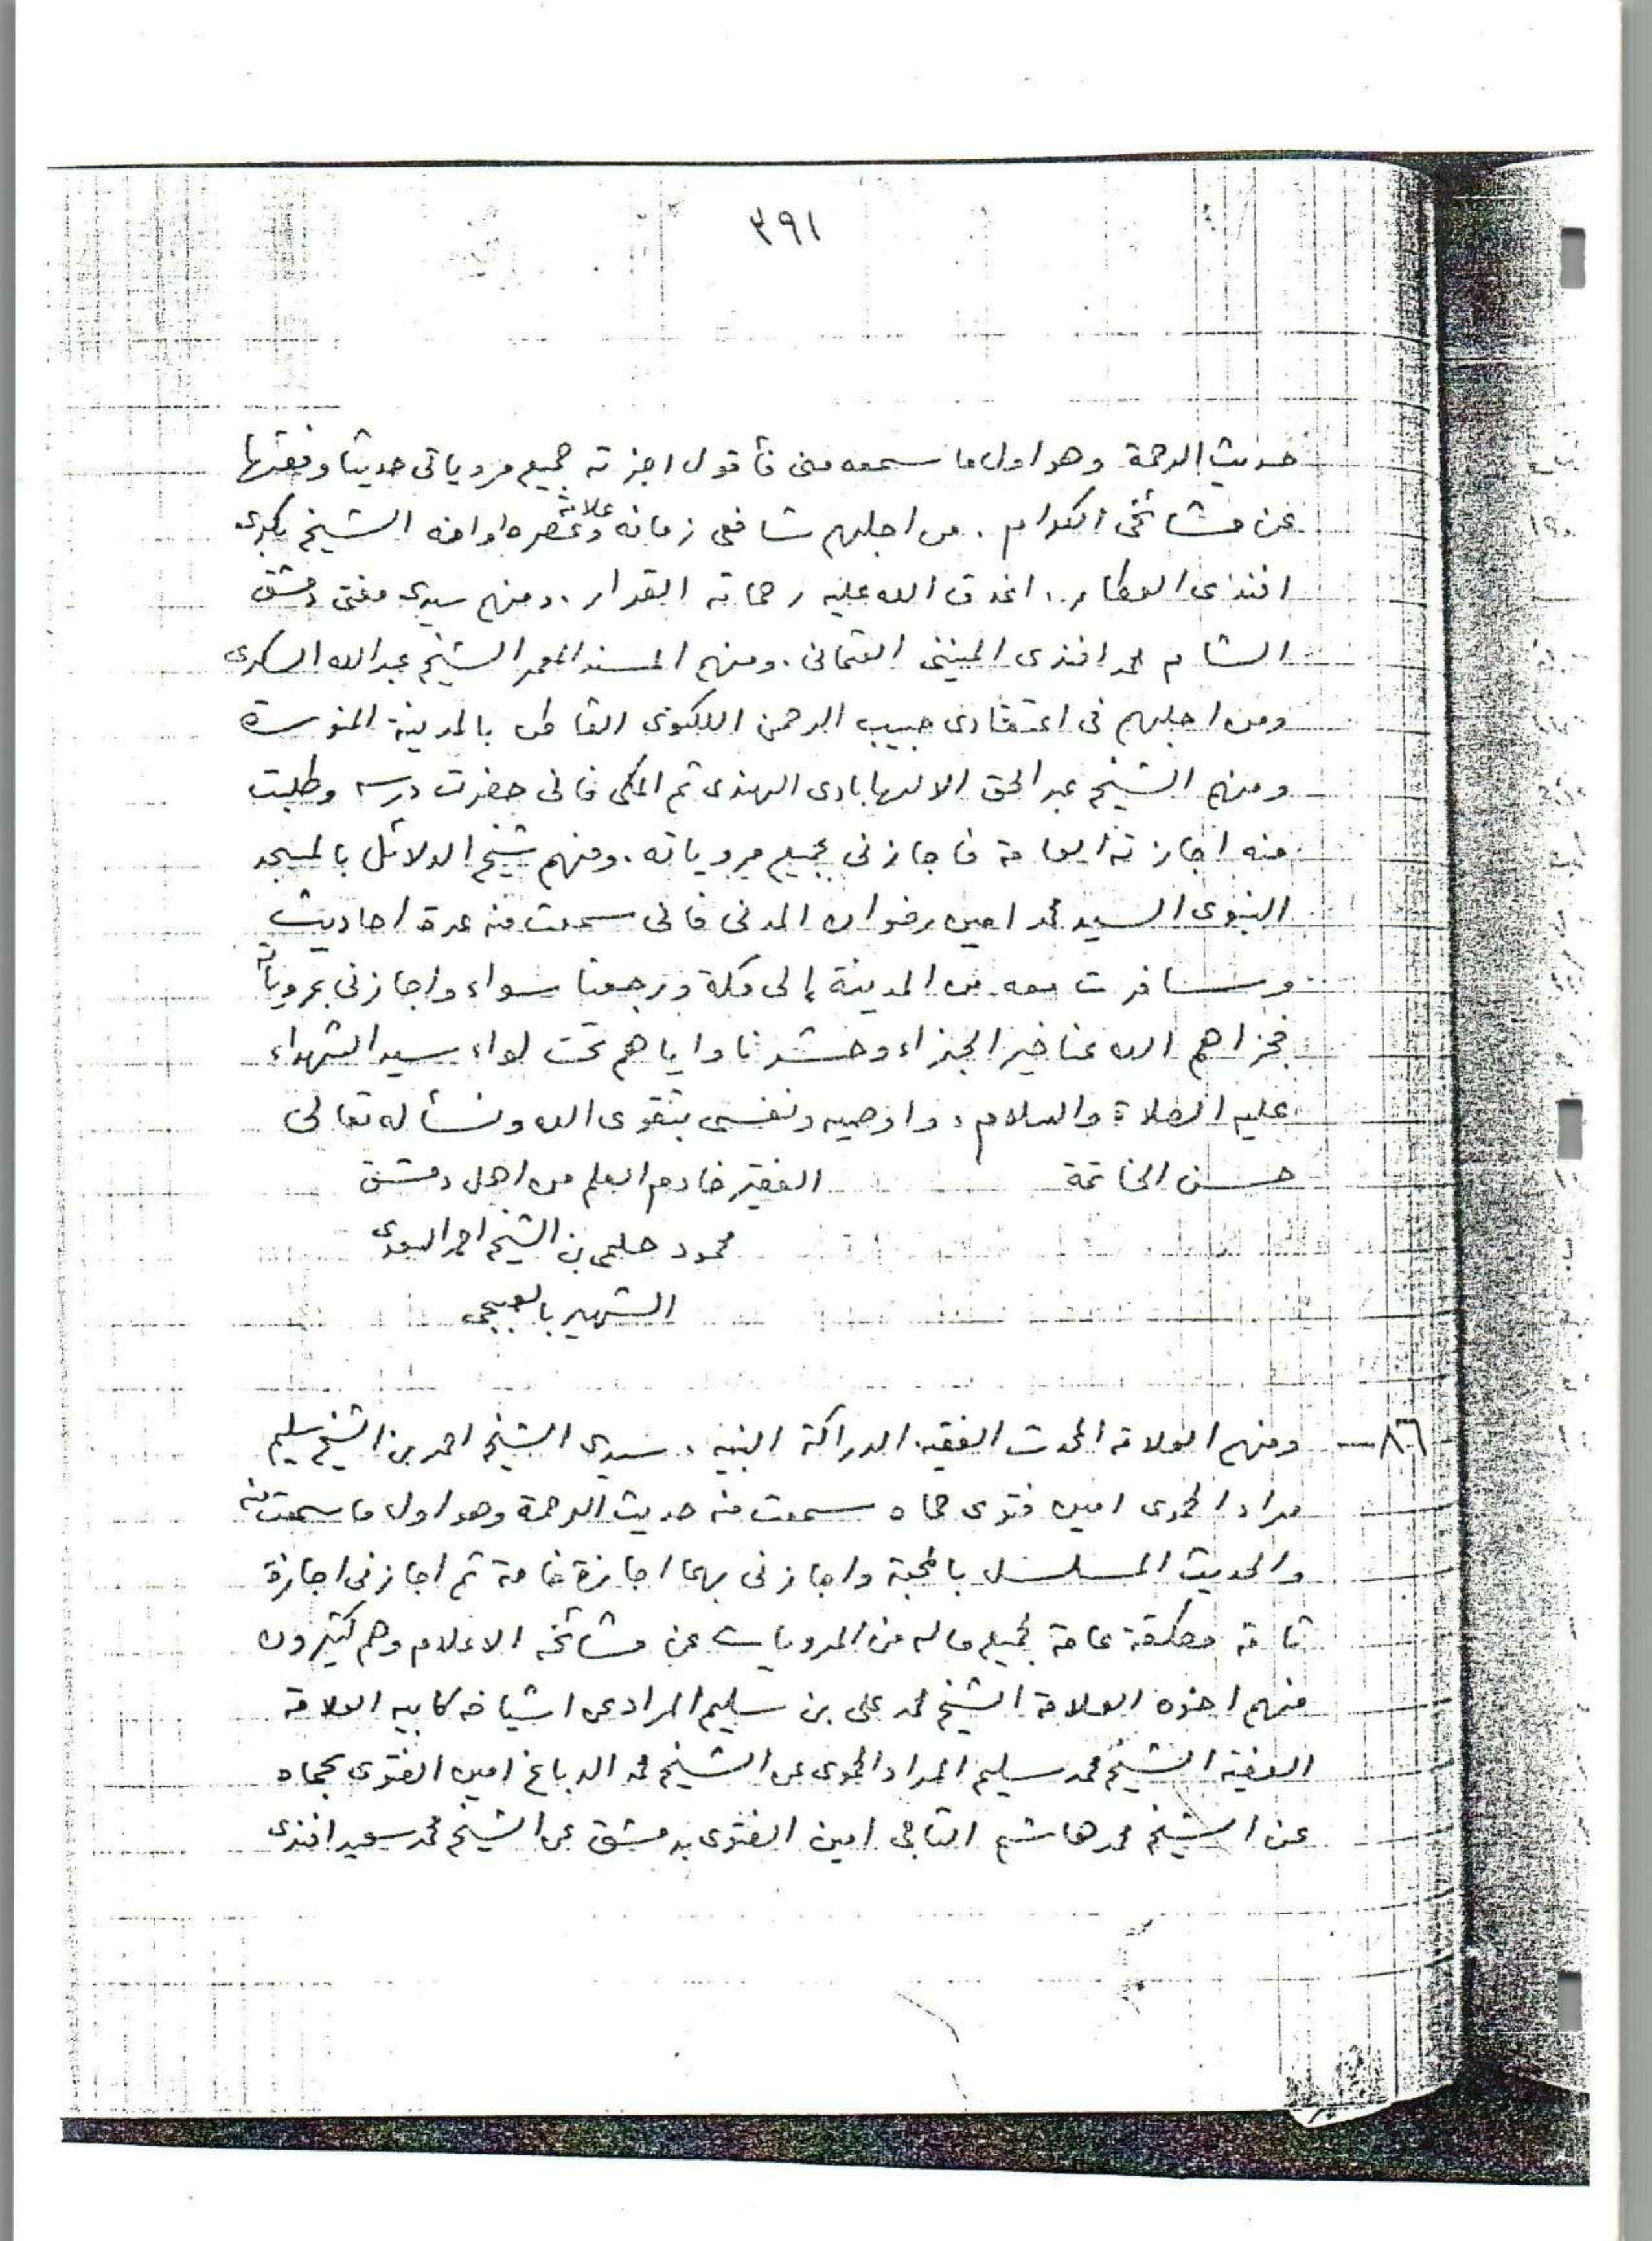 ٣٩١
حديث الرحمة وهو اول ما سمعه منى فأقول اجزته بجميع مروياتى حديثا وفقها
عن مشائخى الكرام . من اجلهم شافعى زمانه وعلامة عصره واوانه الشيخ بكرى
افندى العطار . اغدق الله عليه رحماته الغزار . ومنهم سيدى مفتى دمشق
الشام محمد افندى المينى العثمانى . ومنهم المسند المعمر الشيخ عبد الله السكرى
ومن اجلهم فى اعتقادى حبيب الرحمن اللكنوى القاطن بالمدينة المنورة
ومنهم الشيخ عبد الحق الالهابادى الهندى ثم المكى فانى حضرت درسه وطلبت
منه اجازته العامة فاجازنى بجميع مروياته . ومنهم شيخ الدلائل بالمسجد
النبوى السيد محمد امين رضوان المدنى فانى سمعت منه عدة احاديث
وسافرت معه من المدينة إلى مكة ورجعنا سواء واجازنى بمروياته
فجزاهم الله عنا خير الجزاء وحشرنا واياهم تحت لواء سيد الشهداء
عليه الصلاة والسلام ، واوصيه ونفسى بتقوى الله ونسأله تعالى
حسن الخاتمة الفقير خادم العلم من اهل دمشق
محمود حلمى بن الشيخ احمد
الشهير
٨٦ — ومنهم العلامة المحدث الفقيه الدراكة النبيه ، سيدى الشيخ احمد بن الشيخ سليم
مراد الحموى امين فتوى حماه سمعت منه حديث الرحمة وهو اول ما سمعت منه
والحديث المسلسل بالمحبة واجازنى بهما اجازة خاصة ثم اجازنى اجازة
تامة مطلقة عامة بجميع ماله من المرويات عن مشائخه الاعلام وهم كثيرون
منهم اخوه العلامة الشيخ محمد على بن سليم المراد عن اشياخه كابيه العلامة
الفقيه الشيخ محمد سليم المراد الحموى عن الشيخ محمد الدباغ امين الفتوى بحماه
عن الشيخ محمد هاشم التاجى امين الفتوى بدمشق عن الشيخ محمد سعيد افندى